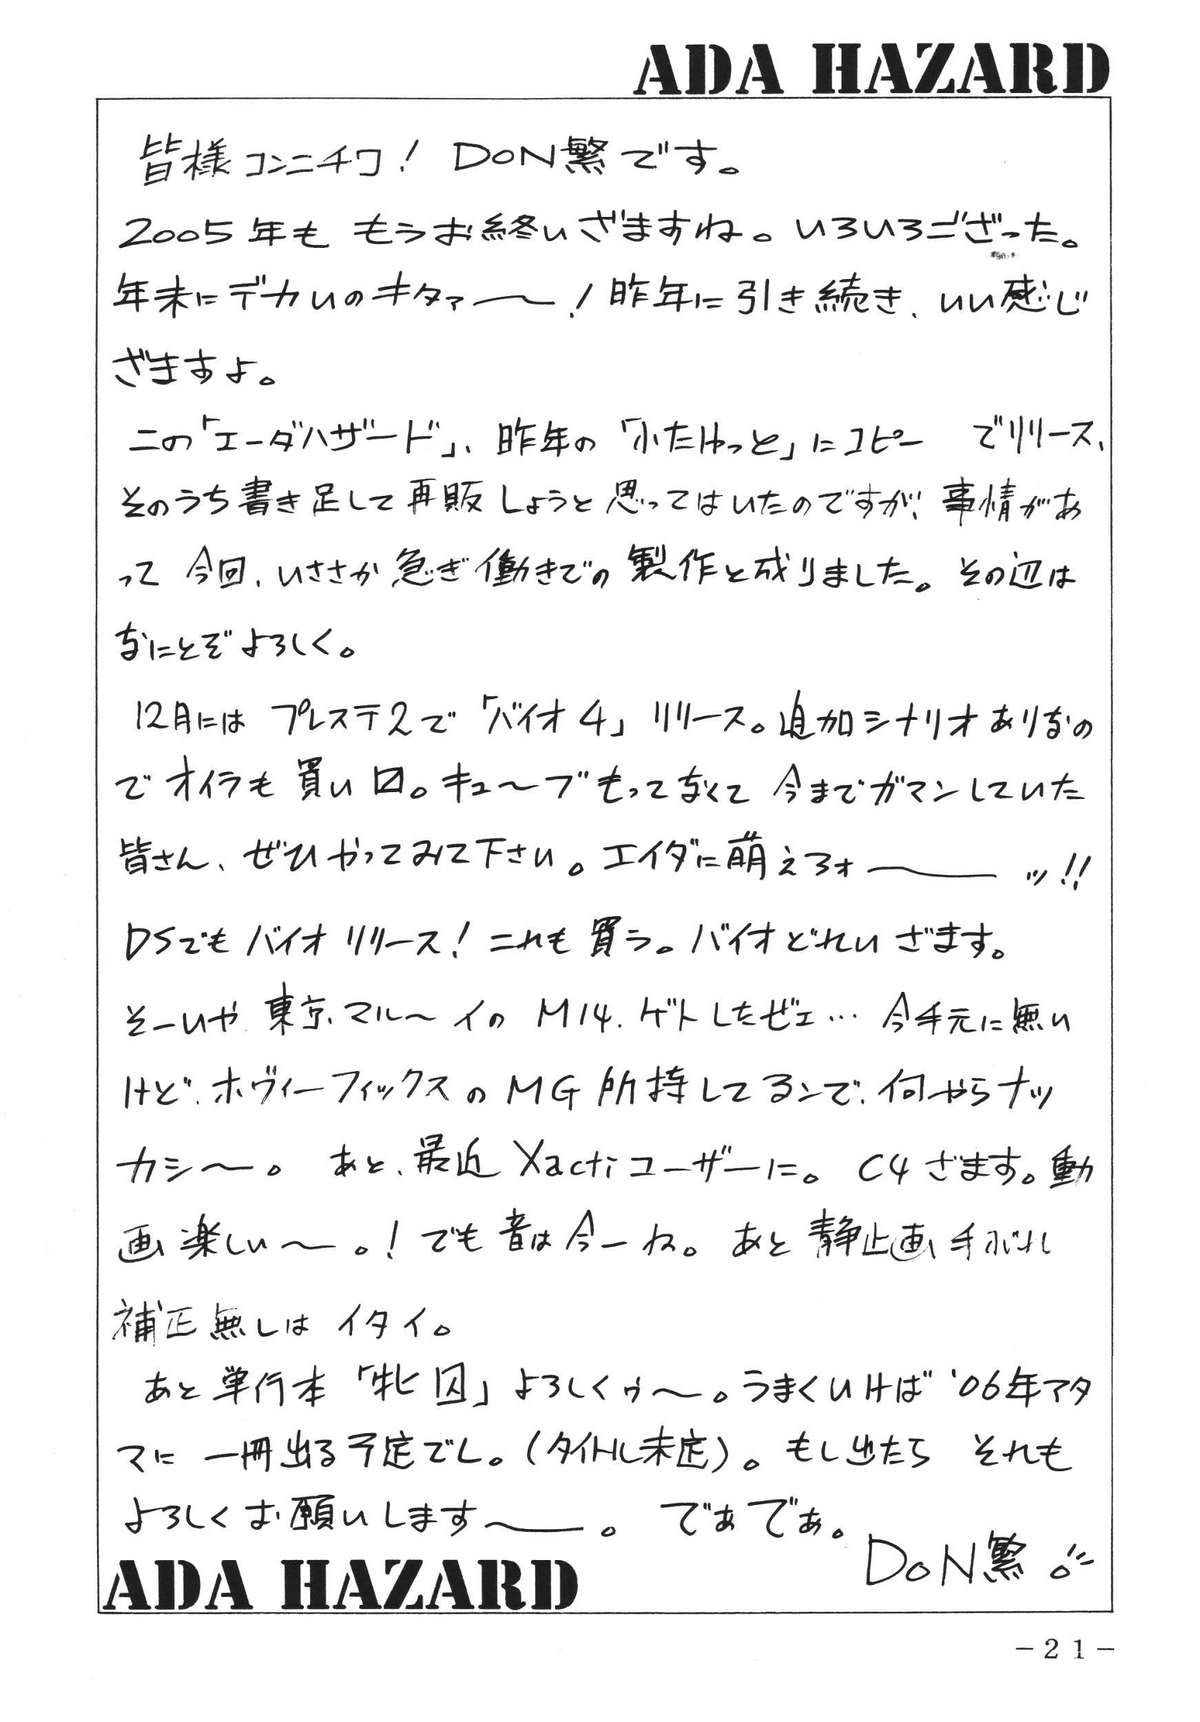 ADA HAZARD
皆様コンニチワ! DON繁です。
2005年も もうお終いざますね。いろいろござった。
年末にデカいのキタァー〜! 昨年に引き続き、いい感じ
ざますよ。
この「エーダハザード」、昨年の「ふたけっと」にコピー でリリース、
そのうち書き足して再販しようと思ってはいたのですが、事情があ
って 今回、いささか急ぎ働きでの製作と成りました。その辺は
なにとぞよろしく。
12月には プレステ2で「バイオ4」リリース。追加シナリオありなの
でオイラも買い 口。キューブもってなくて 今までガマンしていた
皆さん、ぜひやってみて下さい。エイダに萌えろォー〜ッ!!
DSでもバイオリリース! これも買う。バイオどれいざます。
そーいや 東京マルーイの M14、ゲトしたぜェ… 今手元に無い
けど、ホヴィーフィックスのMG所持してるンで、何やらナッ
カシ〜。 あと、最近 Xactiユーザーに。C4ざます。動
画楽しい〜。! でも音は今一ね。あと 静止画手ぶれ
補正無しは イタイ。
あと単行本「牝囚」よろしくゥ〜。うまくいけば '06年アタ
マに 一冊出る予定でし。(タイトル未定)。もし出たら それも
よろしくお願いします〜。 であであ。
DON繁
ADA HAZARD
-21-